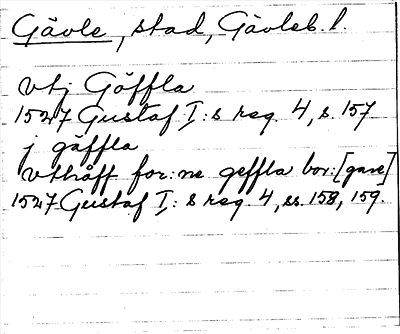 Gävle, stad, Gävleb. l.
vtj Gäffla
1527 Gustaf I:s reg. 4, s. 157
j gäffla
vthåff for:ne geffla bor:[gare]
1527 Gustaf I:s reg. 4, ss. 158, 159.